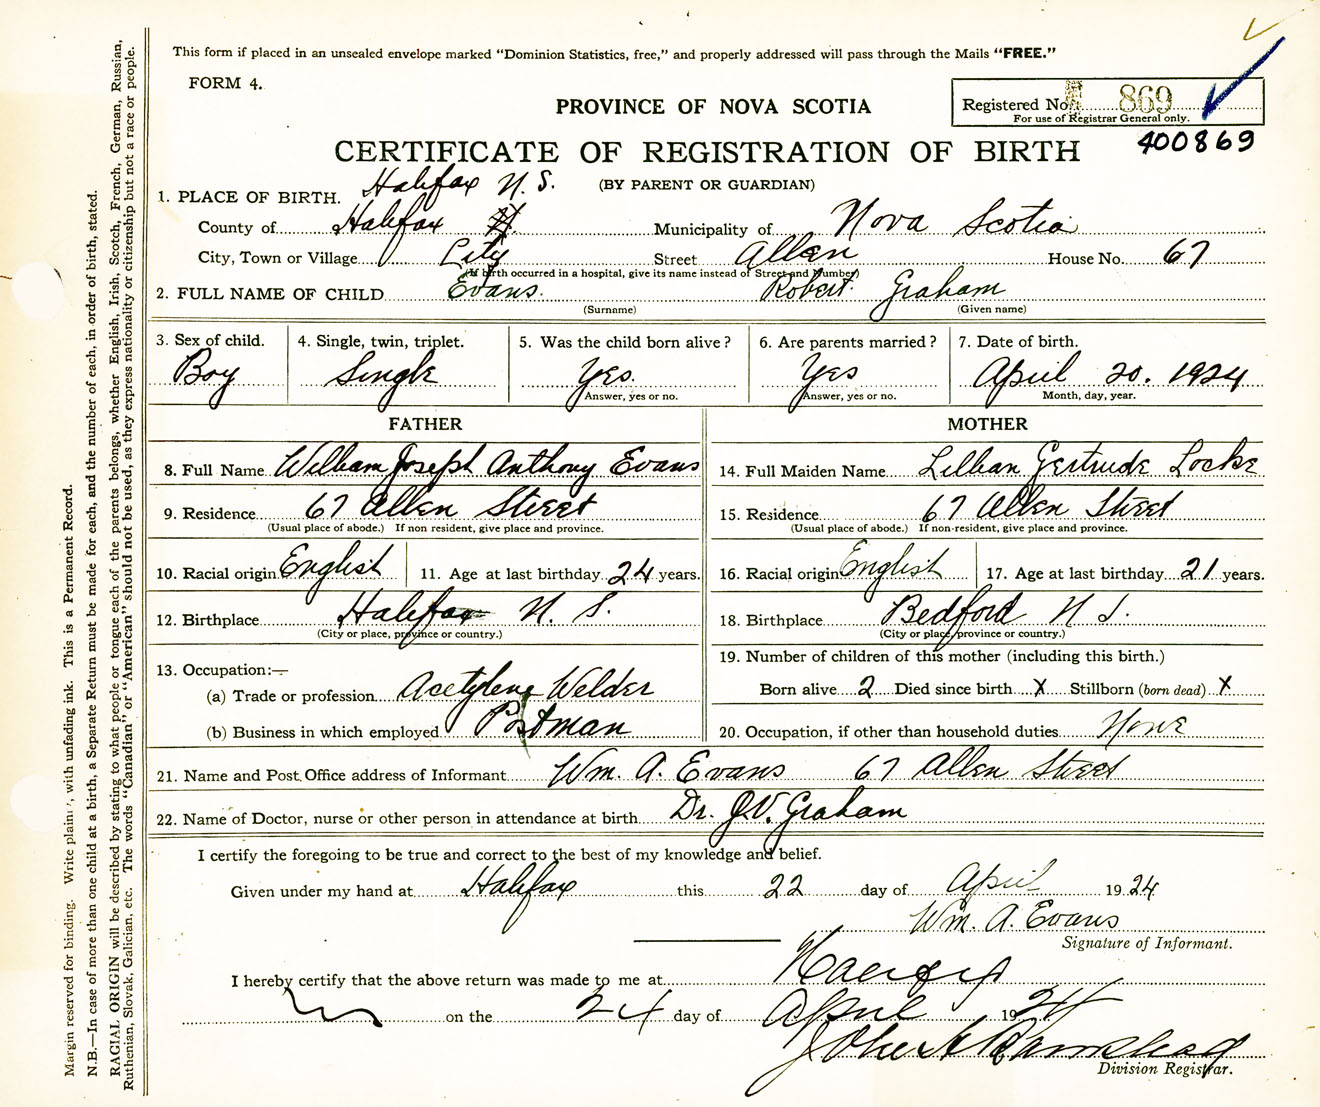 This form if placed in an unsealed envelope marked "Dominion Statistics, free," and properly addressed will pass through the Mails "FREE."
FORM 4.
PROVINCE OF NOVA SCOTIA
Registered No. 869
For use of Registrar General only.
400869
CERTIFICATE OF REGISTRATION OF BIRTH
(BY PARENT OR GUARDIAN)
1. PLACE OF BIRTH. Halifax N. S.
County of Halifax Municipality of Nova Scotia
City, Town or Village City Street Allen House No. 67
(If birth occurred in a hospital, give its name instead of Street and Number)
2. FULL NAME OF CHILD Evans. Robert Graham
(Surname) (Given name)
3. Sex of child. 4. Single, twin, triplet. 5. Was the child born alive? 6. Are parents married? 7. Date of birth.
Boy Single Yes. Yes April 20. 1924
Answer, yes or no. Answer, yes or no. Month, day, year.
FATHER MOTHER
8. Full Name William Joseph Anthony Evans 14. Full Maiden Name Lillian Gertrude Locke
9. Residence 67 Allen Street 15. Residence 67 Allen Street
(Usual place of abode.) If non resident, give place and province. (Usual place of abode.) If non-resident, give place and province.
10. Racial origin English 11. Age at last birthday 24 years. 16. Racial origin English 17. Age at last birthday 21 years.
12. Birthplace Halifax N. S. 18. Birthplace Bedford N S.
(City or place, province or country.) (City or place, province or country.)
13. Occupation:— 19. Number of children of this mother (including this birth.)
(a) Trade or profession Acetylene Welder Born alive 2 Died since birth X Stillborn (born dead) X
(b) Business in which employed Postman 20. Occupation, if other than household duties None
21. Name and Post Office address of Informant Wm. A. Evans 67 Allen Street
22. Name of Doctor, nurse or other person in attendance at birth Dr. J.V. Graham
I certify the foregoing to be true and correct to the best of my knowledge and belief.
Given under my hand at Halifax this 22 day of April 1924
Wm. A. Evans
Signature of Informant.
I hereby certify that the above return was made to me at
on the 24 day of April 1924
John
Division Registrar.
Margin reserved for binding. Write plainly, with unfading ink. This is a Permanent Record.
N.B.—In case of more than one child at a birth, a Separate Return must be made for each, and the number of each, in order of birth, stated.
RACIAL ORIGIN will be described by stating to what people or tongue each of the parents belongs, whether English, Irish, Scotch, French, German, Russian,
Ruthenian, Slovak, Galician, etc. The words "Canadian" or "American" should not be used, as they express nationality or citizenship but not a race or people.